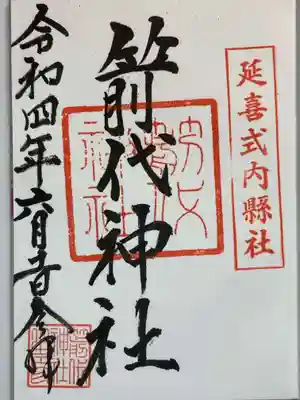 延喜式内縣社
箭代神社
令和四年六月吉日参拝